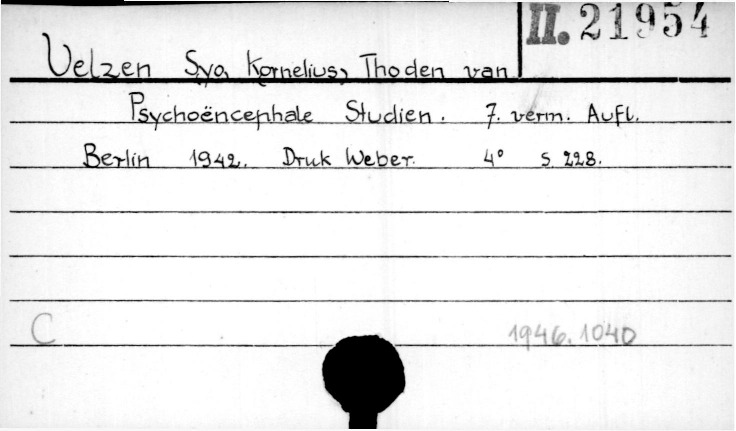 II. 21954
Velzen Syo, Kornelius, Thoden van
Psychoëncephale Studien. 7. verm. Aufl.
Berlin 1942. Druk Weber. 4° S. 228.
C 1946.1040